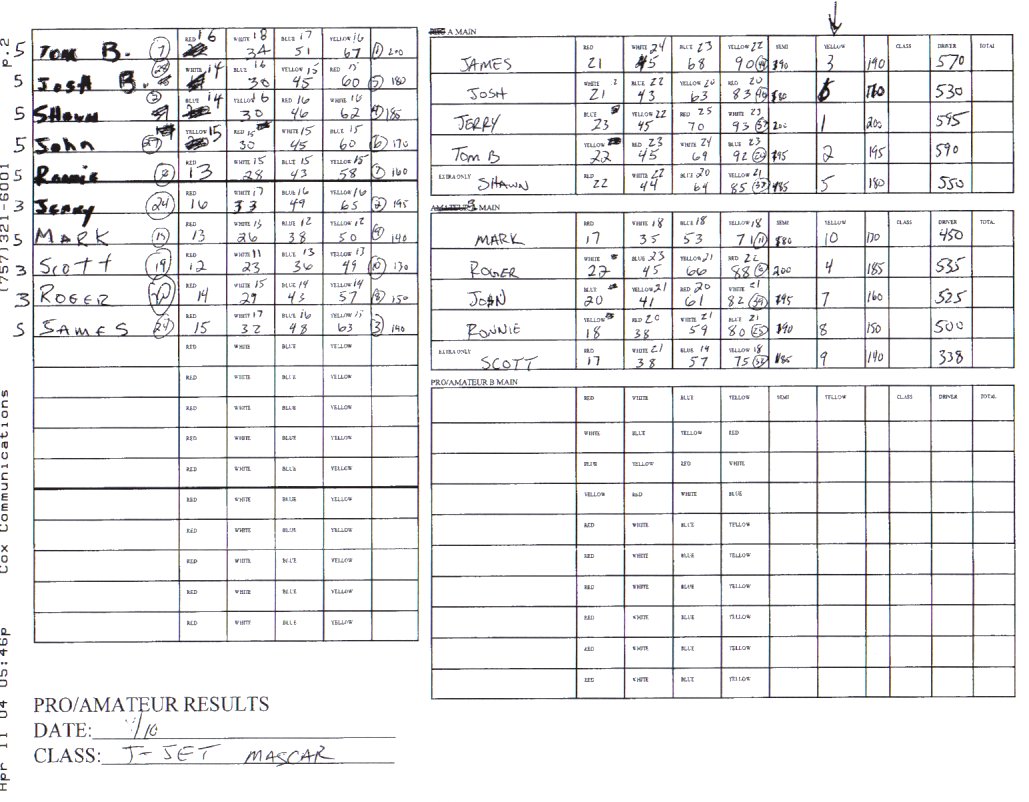 P.2
(757)321-6001
Cox Communications
Apr 11 04 05:46p
5 TOM B. 7 RED 16 WHITE 18 34 BLUE 17 51 YELLOW 16 67 1 200
5 JOSH B. WHITE 14 BLUE 16 30 YELLOW 15 45 RED 15 60 5 180
5 SHAWN BLUE 14 YELLOW 16 30 RED 16 46 WHITE 16 62 4 185
5 John 27 YELLOW 15 RED 15 30 WHITE 15 45 BLUE 15 60 6 170
5 Ronnie RED 13 WHITE 15 28 BLUE 15 43 YELLOW 15 58 7 160
3 JERRY 24 RED 16 WHITE 17 33 BLUE 16 49 YELLOW 16 65 2 195
5 MARK RED 13 WHITE 13 26 BLUE 12 38 YELLOW 12 50 9 140
3 SCOTT 19 RED 12 WHITE 11 23 BLUE 13 36 YELLOW 13 49 10 130
3 ROGER RED 14 WHITE 15 29 BLUE 14 43 YELLOW 14 57 8 150
5 JAMES 24 RED 15 WHITE 17 32 BLUE 16 48 YELLOW 15 63 3 190
RED WHITE BLUE YELLOW
RED WHITE BLUE YELLOW
RED WHITE BLUE YELLOW
RED WHITE BLUE YELLOW
RED WHITE BLUE YELLOW
RED WHITE BLUE YELLOW
RED WHITE BLUE YELLOW
RED WHITE BLUE YELLOW
RED WHITE BLUE YELLOW
RED WHITE BLUE YELLOW
PRO/AMATEUR RESULTS
DATE: 4/10
CLASS: J-JET MASCAR
A MAIN
RED WHITE BLUE YELLOW SEMI YELLOW CLASS DRIVER TOTAL
JAMES 21 24 45 23 68 22 90 190 3 190 570
JOSH WHITE 21 BLUE 22 43 YELLOW 20 63 RED 20 83 180 6 170 530
JERRY BLUE 23 YELLOW 22 45 RED 25 70 WHITE 23 93 200 1 200 595
TOM B YELLOW 22 RED 23 45 WHITE 24 69 BLUE 23 92 195 2 195 590
EXTRA ONLY SHAWN RED 22 WHITE 22 44 BLUE 20 64 YELLOW 21 85 185 5 180 550
AMATEUR B MAIN
MARK RED 17 WHITE 18 35 BLUE 18 53 YELLOW 18 71 11 180 10 130 450
ROGER WHITE 22 BLUE 23 45 YELLOW 21 66 RED 22 88 200 4 185 535
JOHN BLUE 20 YELLOW 21 41 RED 20 61 WHITE 21 82 195 7 160 525
RONNIE YELLOW 18 RED 20 38 WHITE 21 59 BLUE 21 80 25 190 8 150 500
EXTRA ONLY SCOTT RED 17 WHITE 21 38 BLUE 19 57 YELLOW 18 75 185 9 140 338
PRO/AMATEUR B MAIN
RED WHITE BLUE YELLOW SEMI YELLOW CLASS DRIVER TOTAL
WHITE BLUE YELLOW RED
BLUE YELLOW RED WHITE
YELLOW RED WHITE BLUE
RED WHITE BLUE YELLOW
RED WHITE BLUE YELLOW
RED WHITE BLUE YELLOW
RED WHITE BLUE YELLOW
RED WHITE BLUE YELLOW
RED WHITE BLUE YELLOW